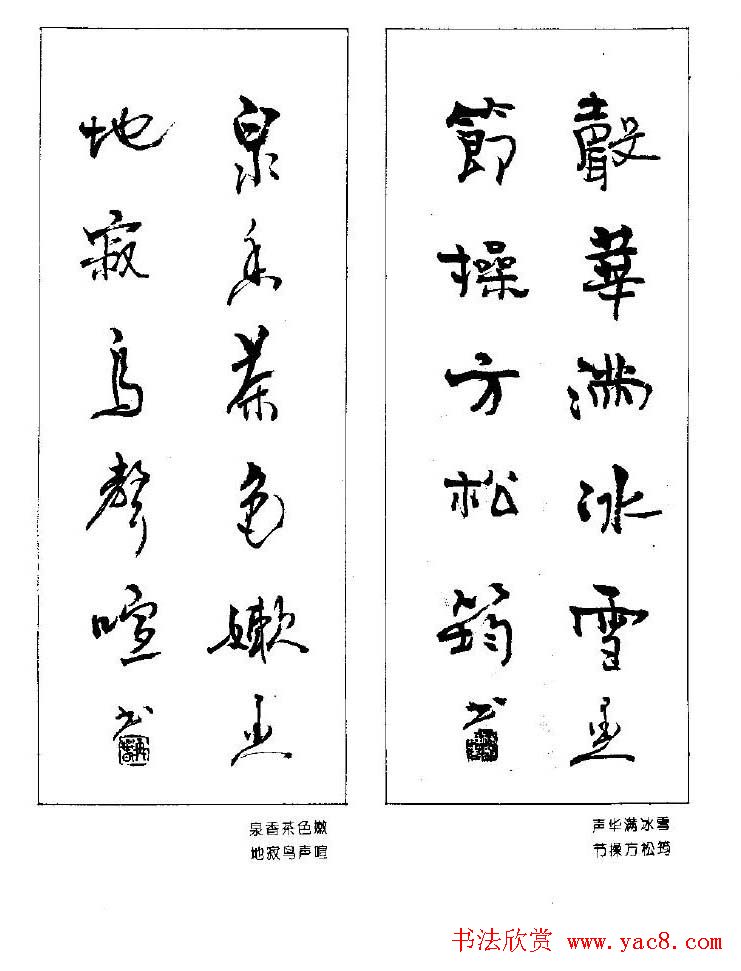 聲華滿冰雪
節操方松筠
书
泉香茶色嫩
地寂鳥聲喧
书
声华满冰雪
节操方松筠
泉香茶色嫩
地寂鸟声喧
书法欣赏 www.yac8.com